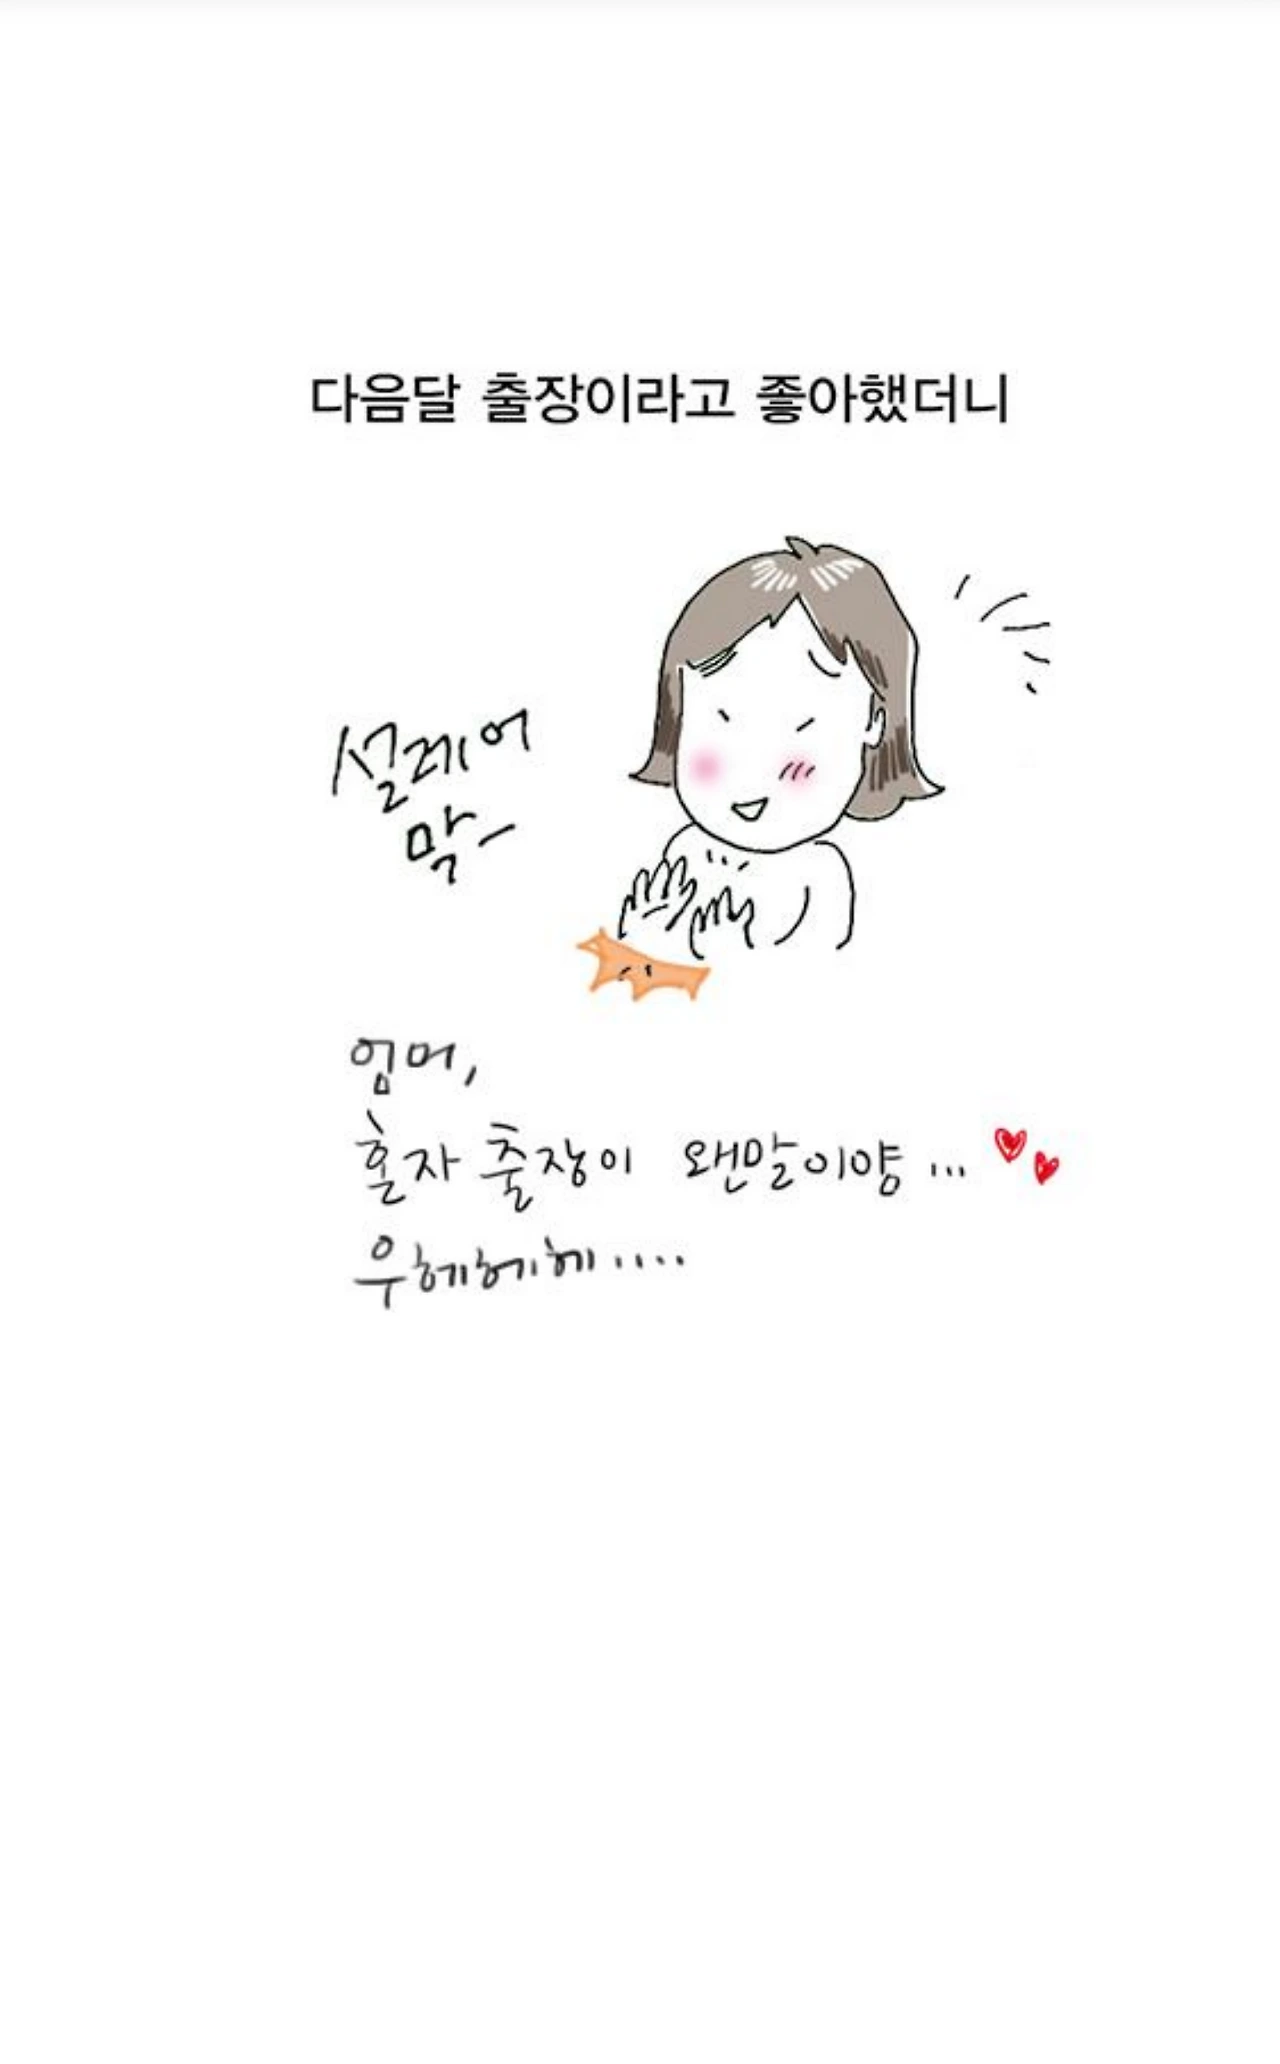 다음달 출장이라고 좋아했더니
설레어
막-
엄머,
혼자 출장이 왠말이얌...
우헤헤헤....